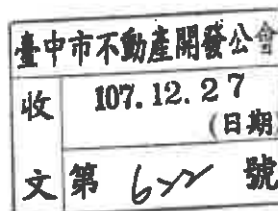 臺中市不動產開發公會
收文
107.12.27
(日期)
第 622 號